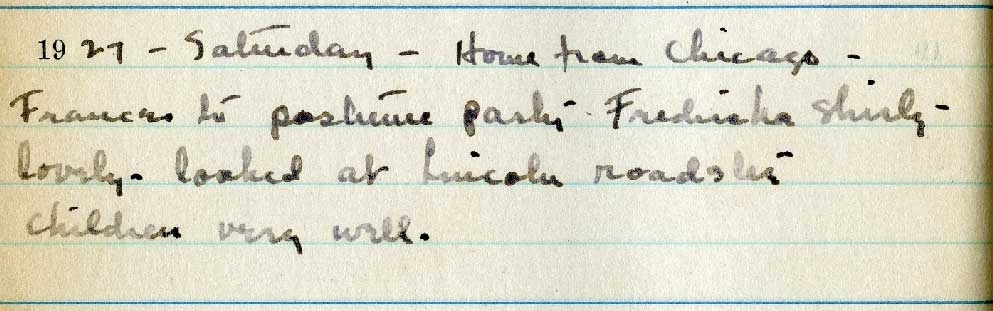 1927 - Saturday - Home from Chicago -
Frances to costume party - Fredricka Shirly -
lovely - looked at Lincoln roadster
children very well.